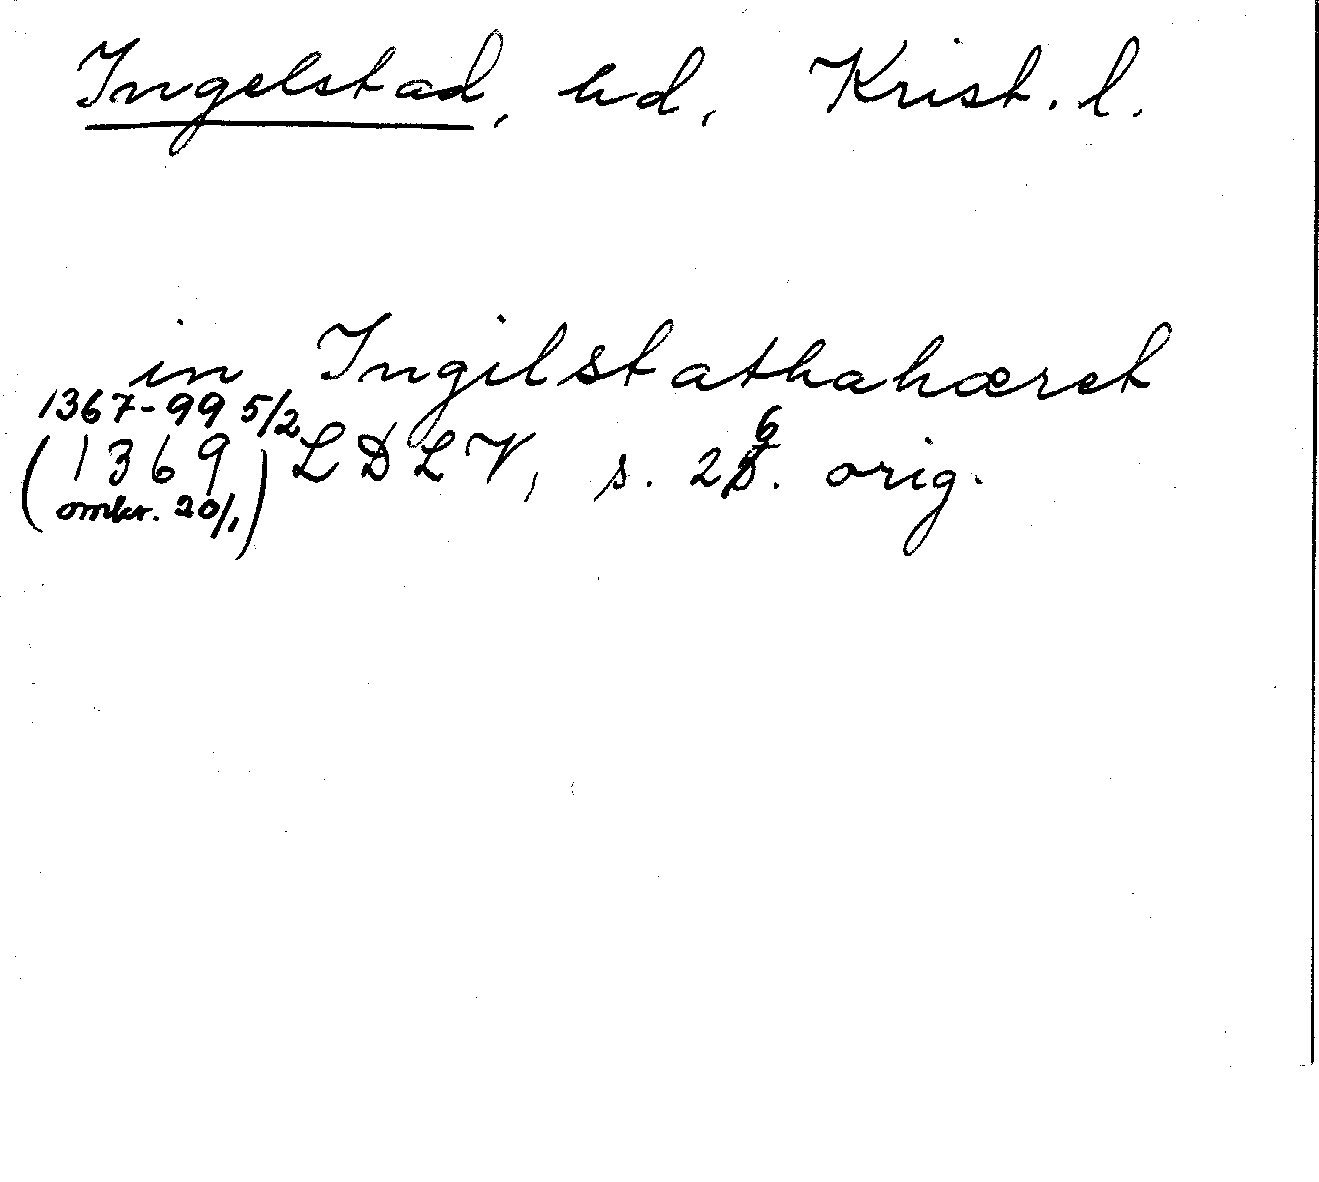 Ingelstad, hd, Krist. l.
in Ingilstathahæret
1367-99 5/2
(1369 omkr. 20/1) LDLV, s. 26. orig.